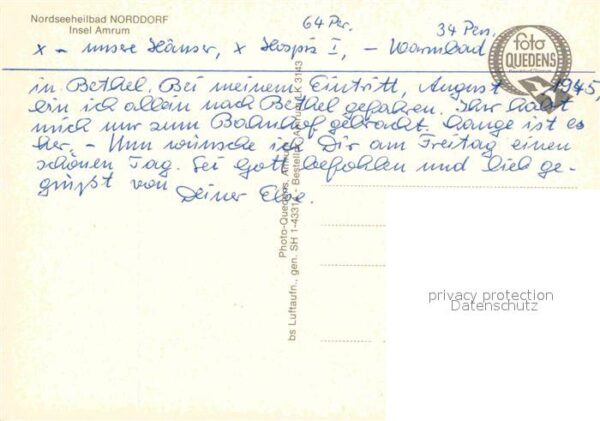 Nordseeheilbad NORDDORF
Insel Amrum
64 Per. 34 Pers.
x - unsere Häuser, x Hospiz I, - Warmbad
foto
QUEDENS
in Bethel. Bei meinem Eintritt, August 1945,
bin ich allein nach Bethel gefahren. Ihr habt
mich nur zum Bahnhof gebracht. Lange ist es
her. - Nun wünsche ich Dir am Freitag einen
schönen Tag. Sei Gott befohlen und lieb ge-
grüßt von Deiner Else.
Photo-Quedens, Amrum - Bestell-Nr. Amrum LK 3143
bs Luftaufn., gen. SH 1-4331
privacy protection
Datenschutz